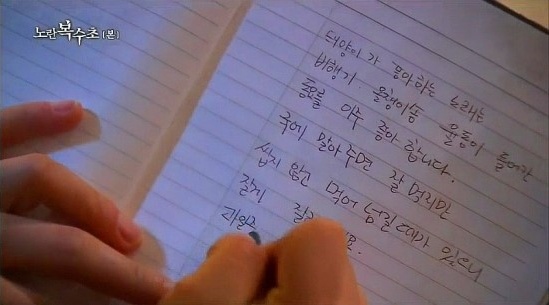 노란복수초(본)
태양이가 좋아하는 노래는
비행기 올챙이쏭 율동이 들어간
동요를 아주 좋아 합니다.
국에 말아주면 잘 먹지만
씹지 않고 먹어 넘길때가 있으니
잘게